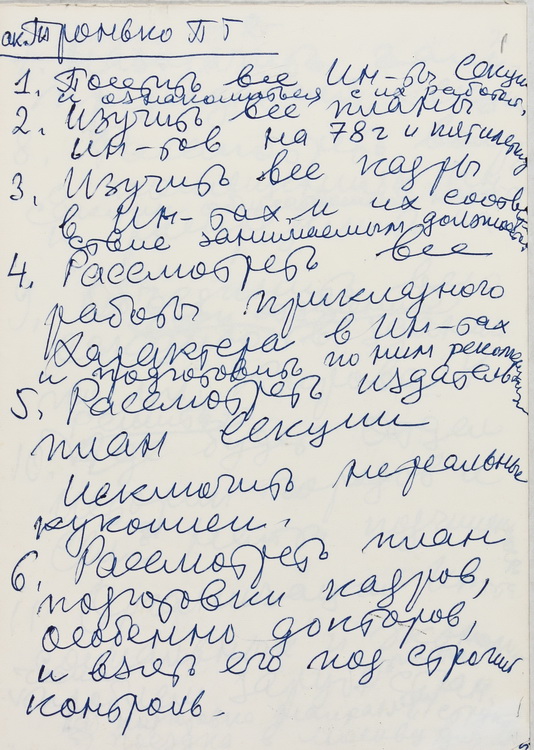 ак. Тронько П Г
1. Посетить все Ин-ты Секции
и ознакомиться с их работой,
2. Изучить все планы
ин-тов на 78 г и пятилетку
3. Изучить все кадры
в Ин-тах, и их соответ-
ствие занимаемым должностям
4. Рассмотреть все
работы прикладного
характера в Ин-тах
и подготовить по ним рекомен
5. Рассмотреть издатель
план секции
Исключить нереальные
рукописи.
6. Рассмотреть план
подготовки кадров,
особенно докторов,
и взять его под строгий
контроль.